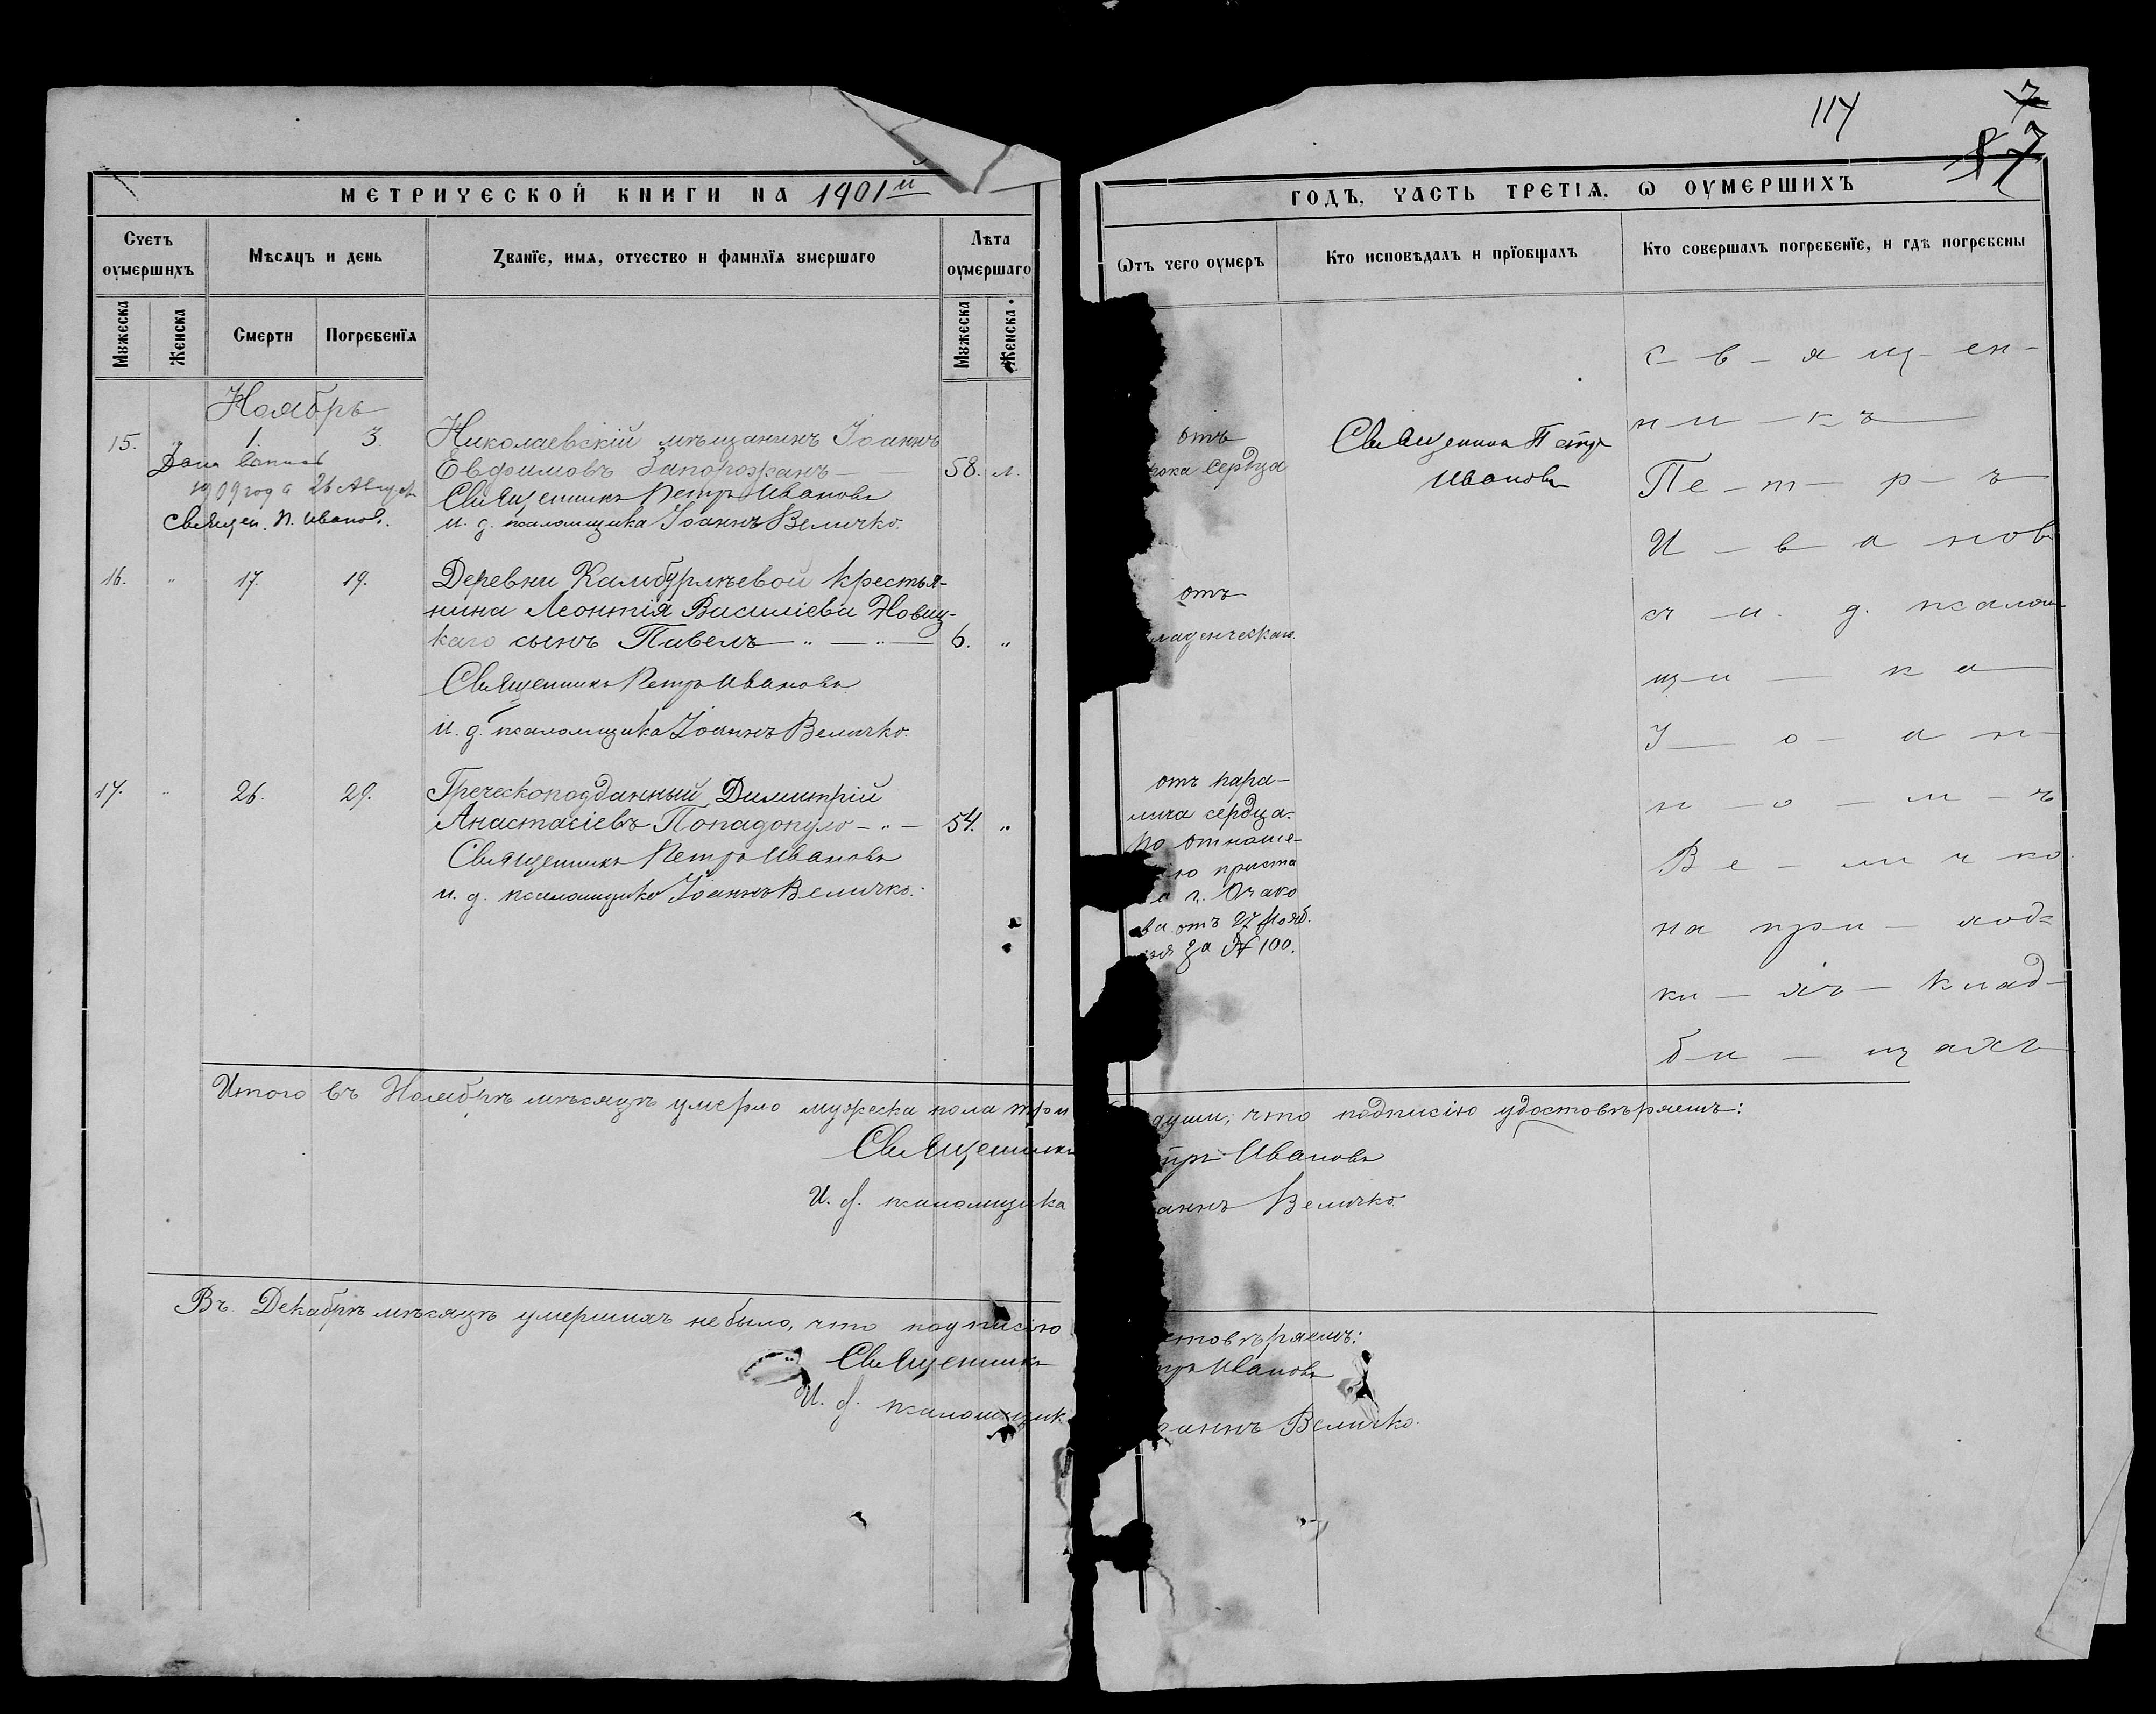 114
7
17
МЕТРИЧЕСКОЙ КНИГИ НА 1901й
ГОДЪ, ЧАСТЬ ТРЕТІѦ, Ѡ ОУМЕРШИХЪ
Счетъ оумершихъ
Мѣсяцъ и день
Званїе, имѧ, отчество и фамилїѧ ꙋмершаго
Лѣта оумершаго
Ѡтъ чего оумеръ
Кто исповѣдалъ и прїобщалъ
Кто совершалъ погребенїе, и гдѣ погребены
Мꙋжеска
Женска
Смерти
Погребенїѧ
Мꙋжеска
Женска
Ноябрь
15. " 1. 3. Николаевскій мѣщанинъ Іоаннъ
Евфимовъ Запорожанъ — — 58. л.
Священникъ Петръ Ивановъ
и. д. псаломщика Іоаннъ Величко.
Дана
1909 года 26 Августа
Священ. П. Иванов.
отъ
рока сердца
Священник Петр
Ивановъ
16. " 17. 19. Деревни Камбурлѣевой крестья-
нина Леонтія Василіева Новиц-
каго сынъ Павелъ — " — " — 6. "
Священникъ Петръ Ивановъ
и. д. псаломщика Іоаннъ Величко.
отъ
младенческаго.
17. " 26. 29. Греческоподданный Димитрій
Анастасіевъ Попадопуло — " — 54. "
Священникъ Петръ Ивановъ
и. д. псаломщика Іоаннъ Величко.
отъ пара-
лича сердца.
По отноше-
ію приста
г. Очако
ва отъ 27 Нояб.
за № 100.
С — в — я щ — ен —
н — и — к ъ
Пе — т — р — ъ
И — в — а нов
съ и. д. псалом
щ — и — к а
І — о — а н —
н — о — м — ъ
В е — ли ч ко.
на при — ход=
ки — хъ — клад —
б — и — щ ахъ
Итого въ Ноябрѣ мѣсяцѣ умерло мужеска пола три души, что подписію удостовѣряемъ:
Священникъ Петръ Ивановъ
И. д. псаломщика Іоаннъ Величко.
Въ Декабрѣ мѣсяцѣ умершихъ не было, что подписію удостовѣряемъ:
Священникъ Петръ Ивановъ
И. д. псаломщик Іоаннъ Величко.